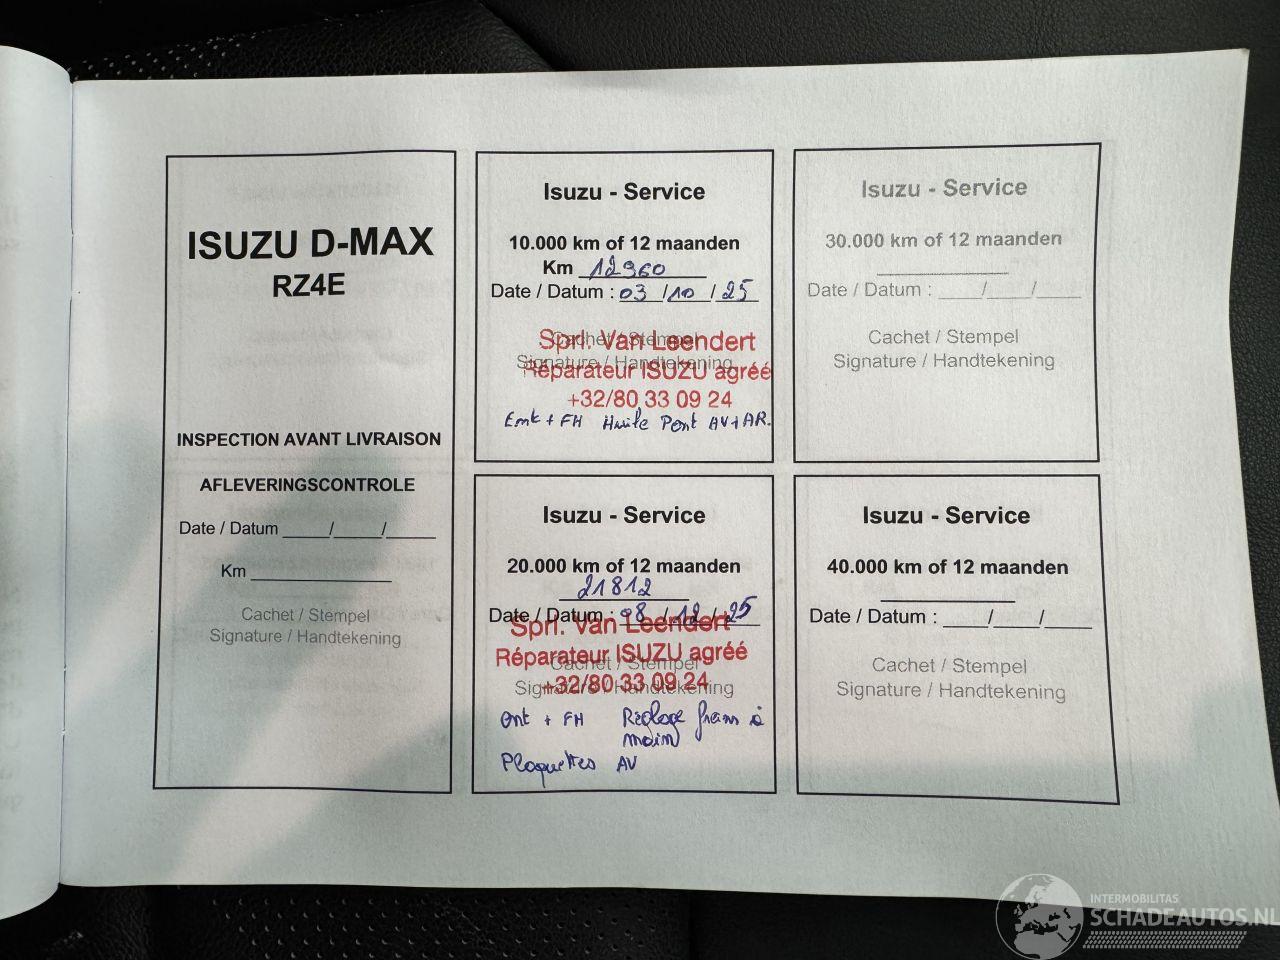 ISUZU D-MAX
RZ4E
INSPECTION AVANT LIVRAISON
AFLEVERINGSCONTROLE
Date / Datum _____/_____/_____
Km _______________
Cachet / Stempel
Signature / Handtekening
Isuzu - Service
10.000 km of 12 maanden
Km 12960
Date / Datum : 03 /10 / 25
Cachet / Stempel
Signature / Handtekening
Sprl. Van Leendert
Réparateur ISUZU agréé
+32/80 33 09 24
Ent + FH Huile Pont AV+AR.
Isuzu - Service
20.000 km of 12 maanden
21812
Date / Datum : 08 / 12 / 25
Sprl. Van Leendert
Réparateur ISUZU agréé
Cachet / Stempel
+32/80 33 09 24
Signature / Handtekening
Ent + FH Réglage frein à
main
Plaquettes AV
Isuzu - Service
30.000 km of 12 maanden
Date / Datum : _____/_____/_____
Cachet / Stempel
Signature / Handtekening
Isuzu - Service
40.000 km of 12 maanden
Date / Datum : _____/_____/_____
Cachet / Stempel
Signature / Handtekening
INTERMOBILITAS
SCHADEAUTOS.NL